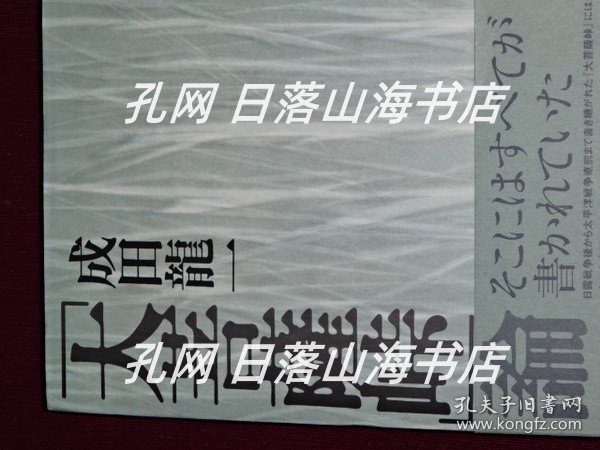 孔网 日落山海书店
成田龍一
「大菩薩峠」論
そこにはすべてが
書かれていた
日露戦争後から太平洋戦争直前まで書き継がれた「大菩薩峠」には
孔网 日落山海书店
孔夫子旧书网
www.kongfz.com